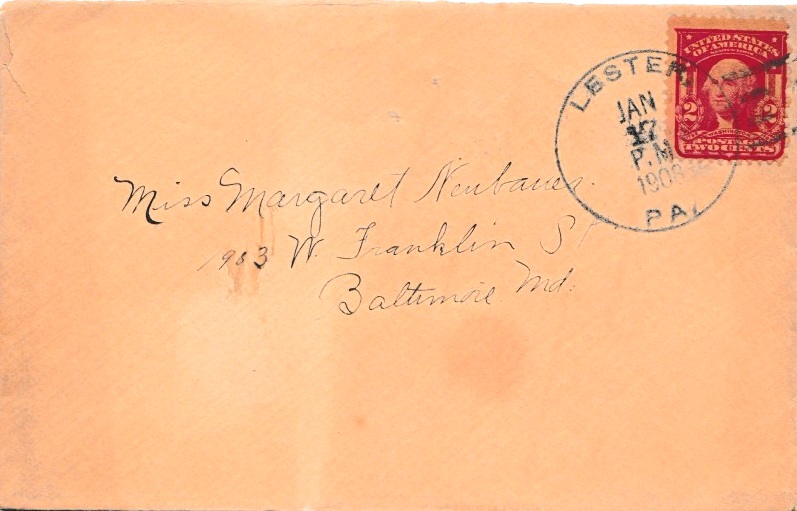 UNITED STATES
OF AMERICA
2 2
WASHINGTON
POSTAGE
TWO CENTS
LESTER,
JAN
17
P.M
1908
PA.
Miss Margaret Neubauer.
1903 W. Franklin St
Baltimore Md.